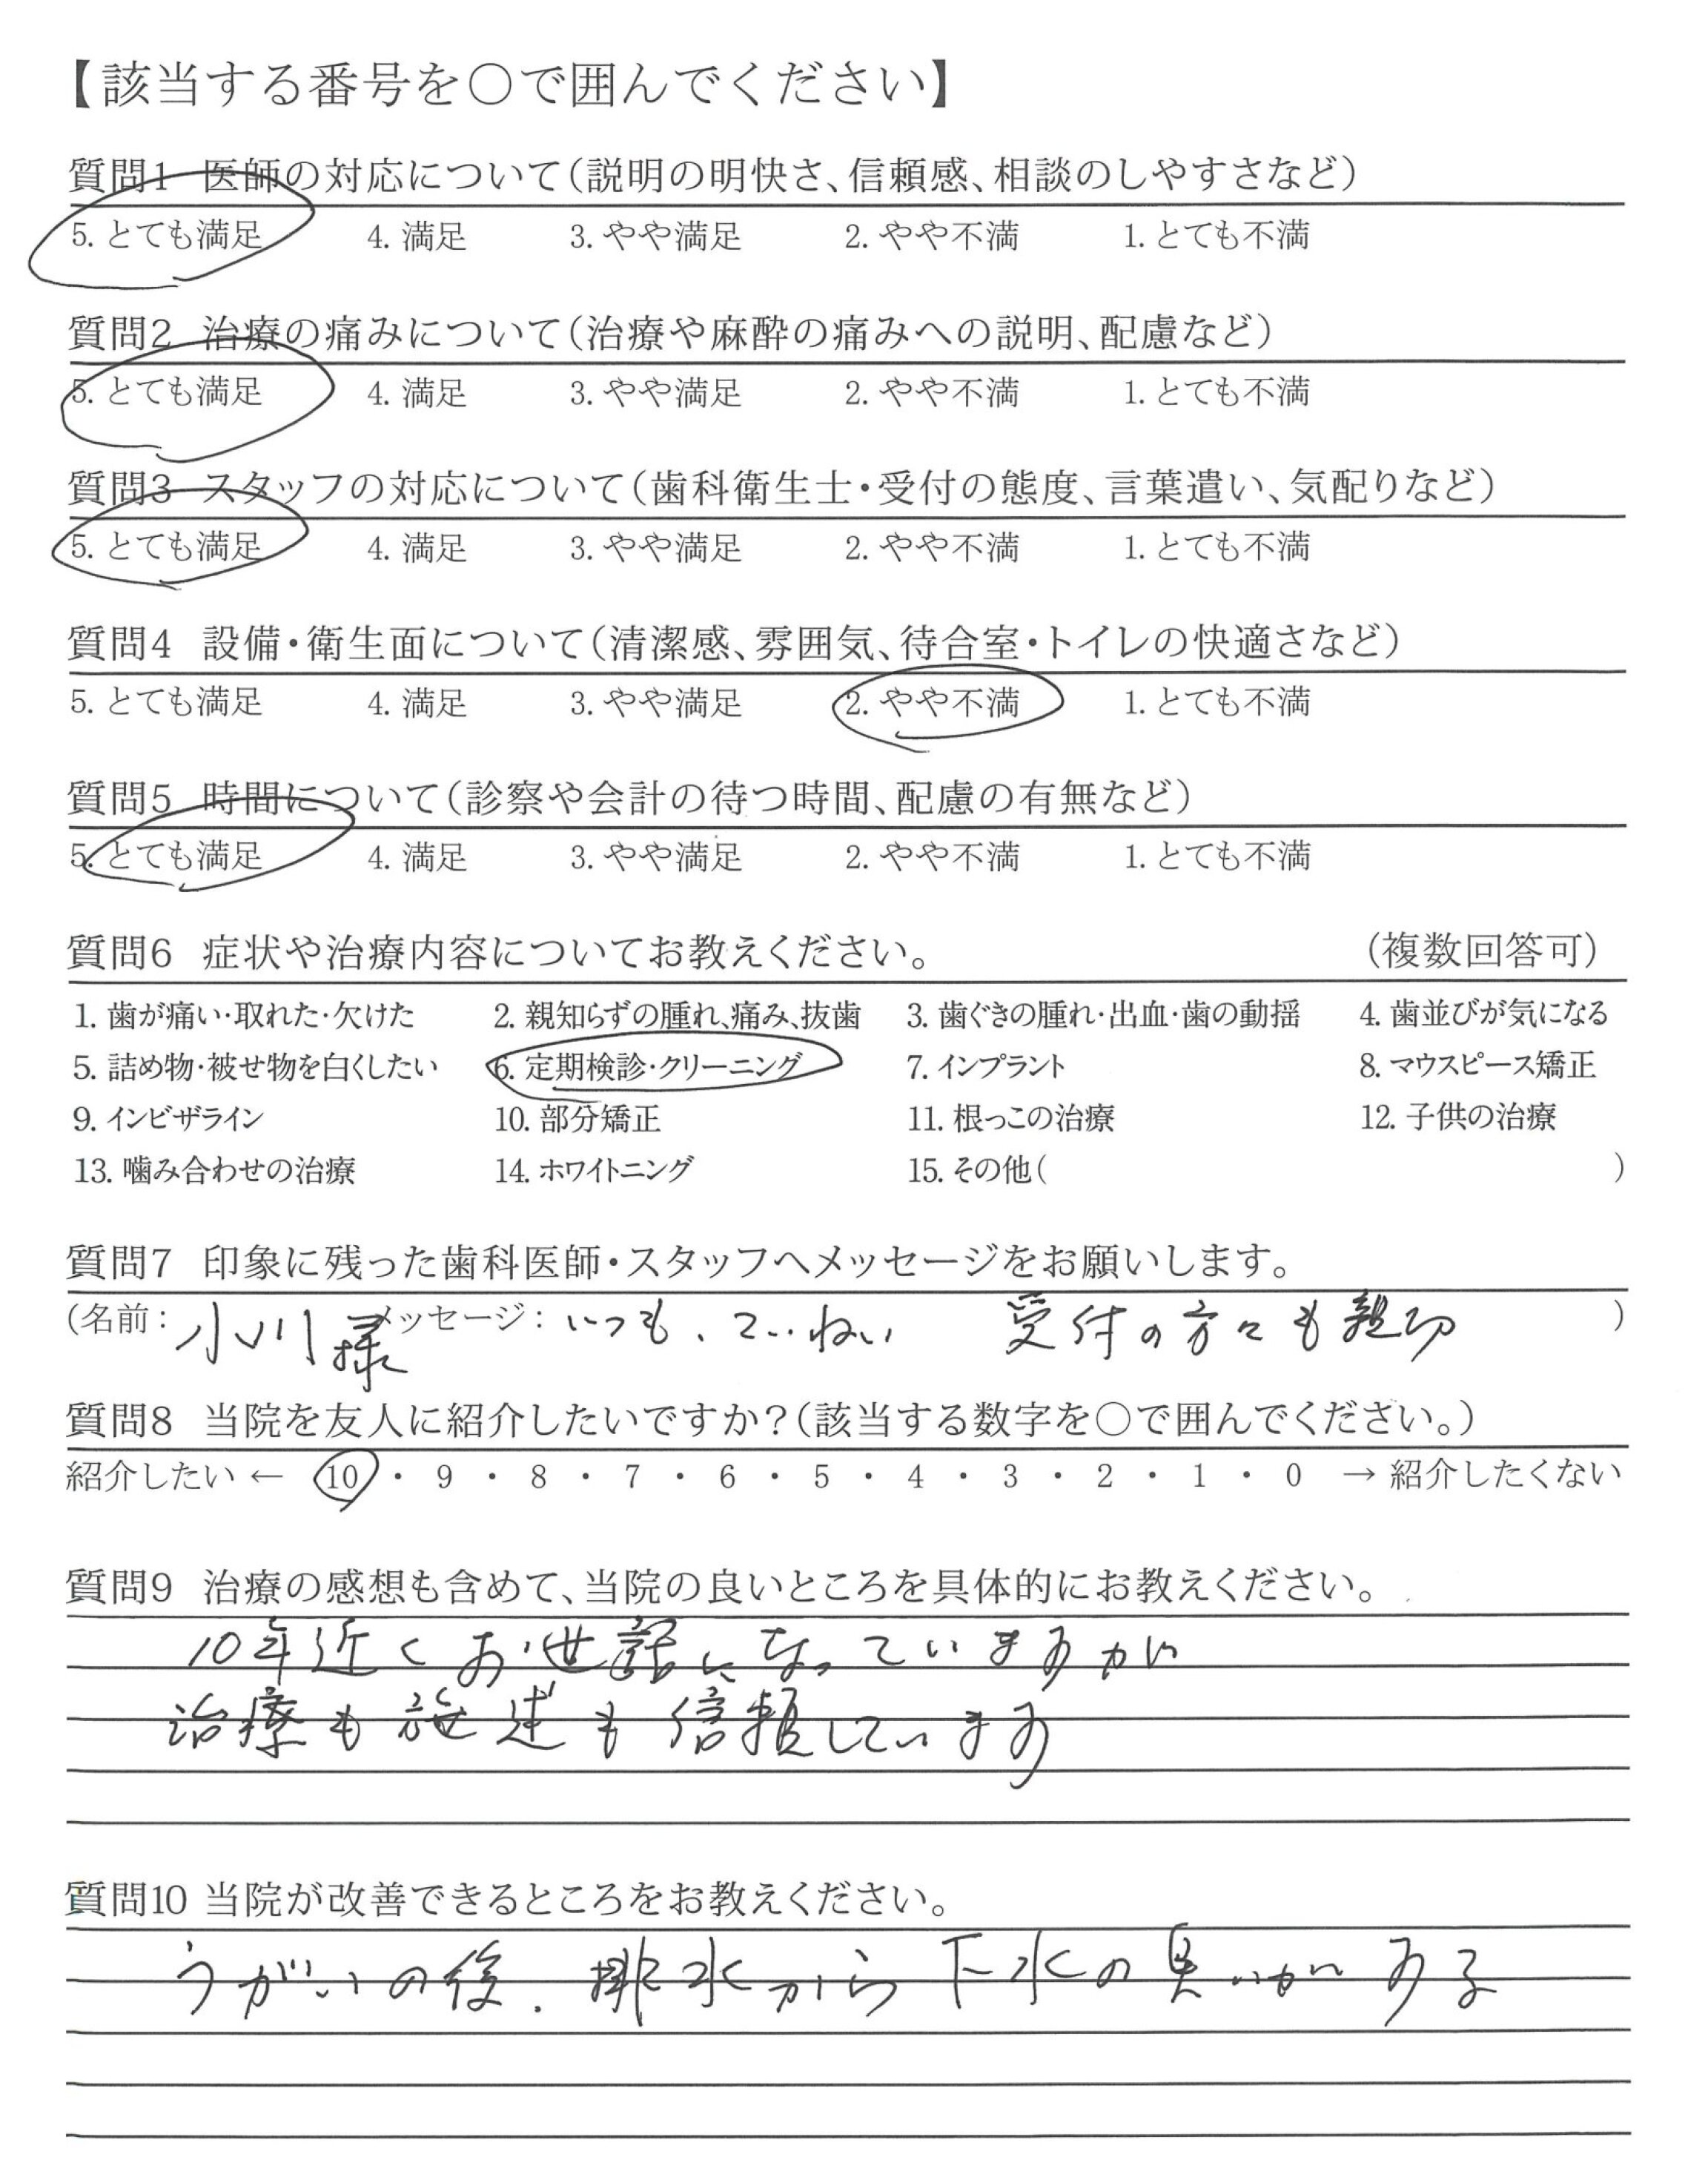 【該当する番号を〇で囲んでください】
質問1 医師の対応について（説明の明快さ、信頼感、相談のしやすさなど）
5. とても満足 4. 満足 3. やや満足 2. やや不満 1. とても不満
質問2 治療の痛みについて（治療や麻酔の痛みへの説明、配慮など）
5. とても満足 4. 満足 3. やや満足 2. やや不満 1. とても不満
質問3 スタッフの対応について（歯科衛生士・受付の態度、言葉遣い、気配りなど）
5. とても満足 4. 満足 3. やや満足 2. やや不満 1. とても不満
質問4 設備・衛生面について（清潔感、雰囲気、待合室・トイレの快適さなど）
5. とても満足 4. 満足 3. やや満足 2. やや不満 1. とても不満
質問5 時間について（診察や会計の待つ時間、配慮の有無など）
5. とても満足 4. 満足 3. やや満足 2. やや不満 1. とても不満
質問6 症状や治療内容についてお教えください。 （複数回答可）
1. 歯が痛い・取れた・欠けた 2. 親知らずの腫れ、痛み、抜歯 3. 歯ぐきの腫れ・出血・歯の動揺 4. 歯並びが気になる
5. 詰め物・被せ物を白くしたい 6. 定期検診・クリーニング 7. インプラント 8. マウスピース矯正
9. インビザライン 10. 部分矯正 11. 根っこの治療 12. 子供の治療
13. 噛み合わせの治療 14. ホワイトニング 15. その他（ ）
質問7 印象に残った歯科医師・スタッフへメッセージをお願いします。
（名前： 小川様 メッセージ： いつも、ていねい 受付の方々も親切 ）
質問8 当院を友人に紹介したいですか？（該当する数字を〇で囲んでください。）
紹介したい ← 10 ・ 9 ・ 8 ・ 7 ・ 6 ・ 5 ・ 4 ・ 3 ・ 2 ・ 1 ・ 0 → 紹介したくない
質問9 治療の感想も含めて、当院の良いところを具体的にお教えください。
10年近くお世話になっていますが
治療も施述も信頼しています
質問10 当院が改善できるところをお教えください。
うがいの後、排水から下水の臭いがある